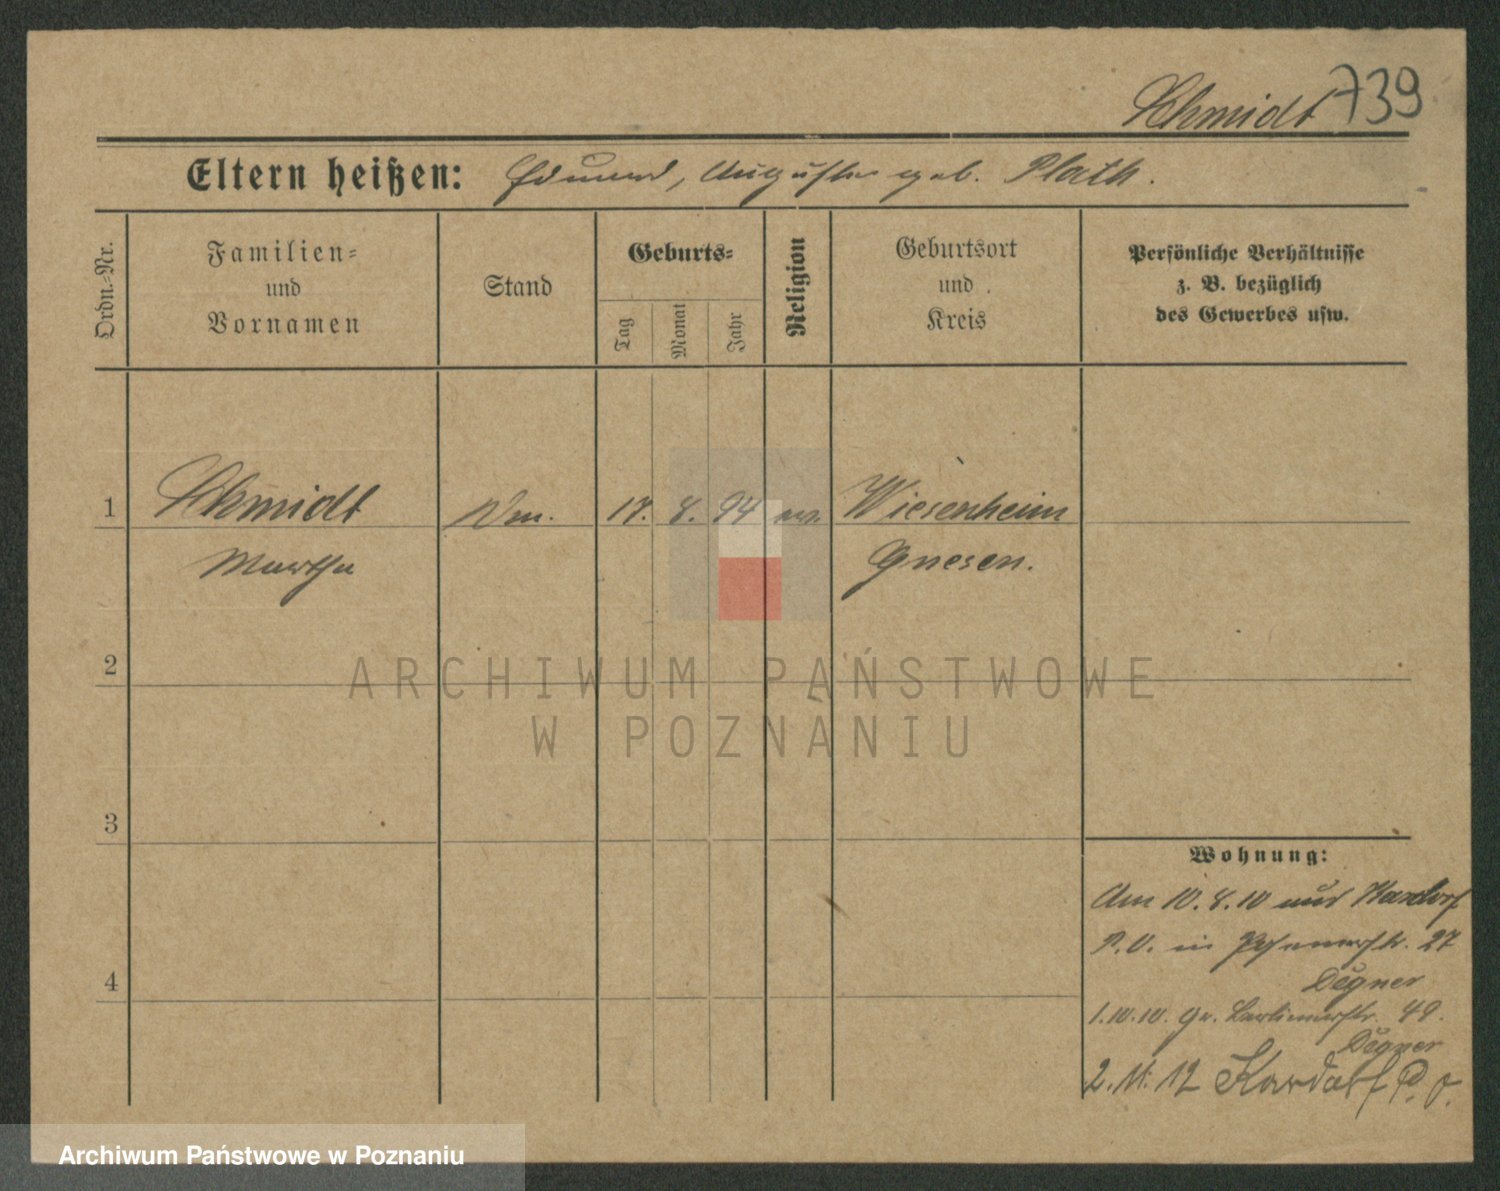 Schmidt 739
Eltern heißen: Eduard, Auguste geb. Plath.
Ordn.=Nr.
Familien=
und
Vornamen
Stand
Geburts=
Tag
Monat
Jahr
Religion
Geburtsort
und
Kreis
Persönliche Verhältnisse
z. B. bezüglich
des Gewerbes usw.
1 Schmidt 17. 8. 94 ev. Wiesenheim
Martha Gnesen.
2
3
4
Wohnung:
Am 10.8.10 aus Kardorf
P.O. in 27
Degner
1.10.10. Gr. Berlinerstr. 49.
Degner
2.11.12 Kardorf P.O.
ARCHIWUM PAŃSTWOWE
W POZNANIU
Archiwum Państwowe w Poznaniu